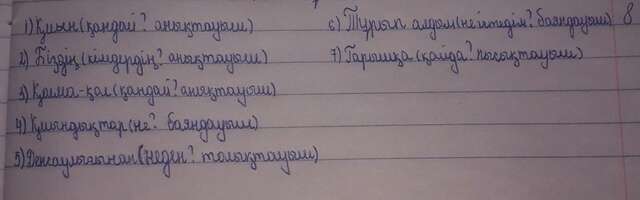 1) Қиын (қандай? анықтауыш)
2) Біздің (кімдердің? анықтауыш)
3) Қыма-қал (қандай? анықтауыш)
4) Қиындықтар (не? баяндауыш)
5) Денсаулығынан (неден? толықтауыш)
6) Тұрып алдым (не істедім? баяндауыш) 8
7) Ғарышқа (қайда? пысықтауыш)